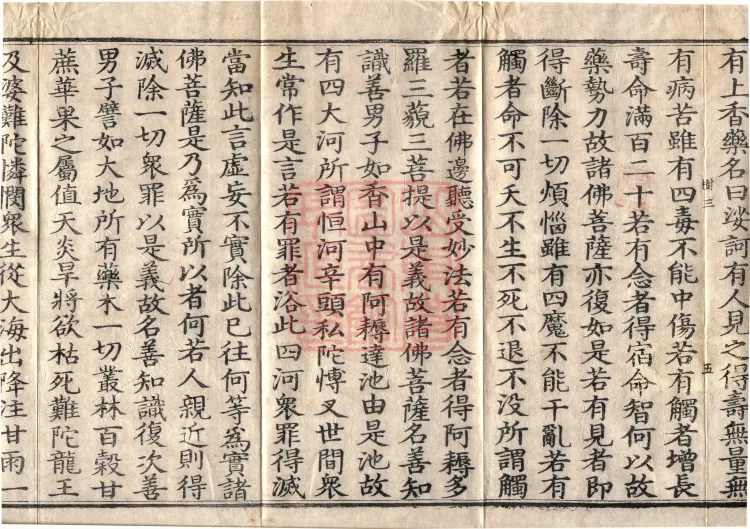 有上香藥名曰娑訶有人見之得壽無量無
樹三
五
有病苦雖有四毒不能中傷若有觸者增長
壽命滿百二十若有念者得宿命智何以故
藥勢力故諸佛菩薩亦復如是若有見者即
得斷除一切煩惱雖有四魔不能干亂若有
觸者命不可夭不生不死不退不没所謂觸
者若在佛邊聽受妙法若有念者得阿耨多
羅三藐三菩提以是義故諸佛菩薩名善知
識善男子如香山中有阿耨達池由是池故
有四大河所謂恒河辛頭私陀愽叉世間衆
生常作是言若有罪者浴此四河衆罪得滅
當知此言虛妄不實除此已往何等爲實諸
佛菩薩是乃爲實所以者何若人親近則得
滅除一切衆罪以是義故名善知識復次善
男子譬如大地所有藥木一切叢林百穀甘
蔗華果之屬值天炎旱將欲枯死難陀龍王
及婆難陀憐愍衆生從大海出降注甘雨一